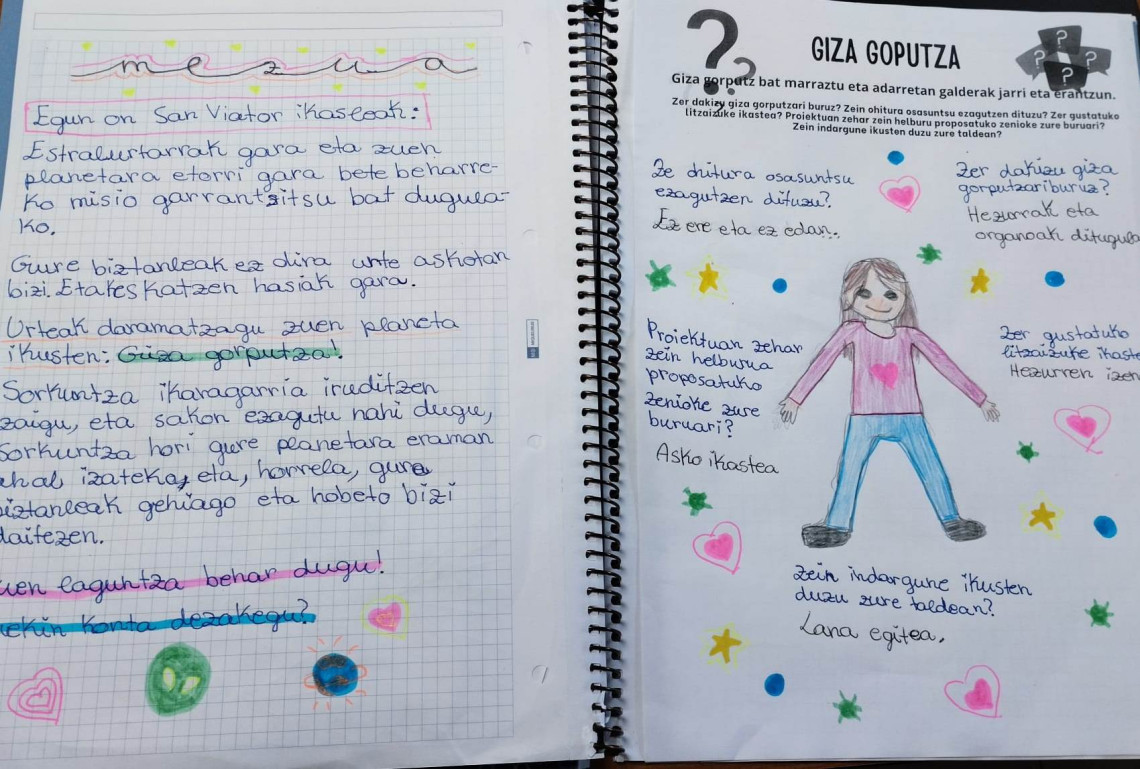 mezua
Egun on San Viator ikasleak:
Estralurtarrak gara eta zuen
planetara etorri gara bete beharre-
ko misio garrantzsitsu bat dugula-
ko.
Gure biztanleak ez dira urte askotan
bizi. Eta keskatzen hasiak gara.
Urteak daramatzagu zuen planeta
ikusten: Giza gorputza!
Sorkuntza ikaragarria iruditzen
zaigu, eta sakon ezagutu nahi dugu,
Sorkuntza hori gure planetara eraman
ahal izateko, eta, horrela, gure
biztanleak gehiago eta hobeto bizi
daitezen.
zuen laguntza behar dugu!
zuekin konta dezakegu?
GIZA GOPUTZA
Giza gorputz bat marraztu eta adarretan galderak jarri eta erantzun.
Zer dakizu giza gorputzari buruz? Zein ohitura osasuntsu ezagutzen dituzu? Zer gustatuko
litzaizuke ikastea? Proiektuan zehar zein helburu proposatuko zenioke zure buruari?
Zein indargune ikusten duzu zure taldean?
Ze ohitura osasuntsu
ezagutzen dituzu?
Ez erre eta ez edan.
Zer dakizu giza
gorputzari buruz?
Hezurrak eta
organoak ditugula
Proiektuan zehar
zein helburua
proposatuko
zenioke zure
buruari?
Asko ikastea
Zer gustatuko
litzaizuke ikaste
Hezurren izen
Zein indargune ikusten
duzu zure taldean?
Lana egitea.